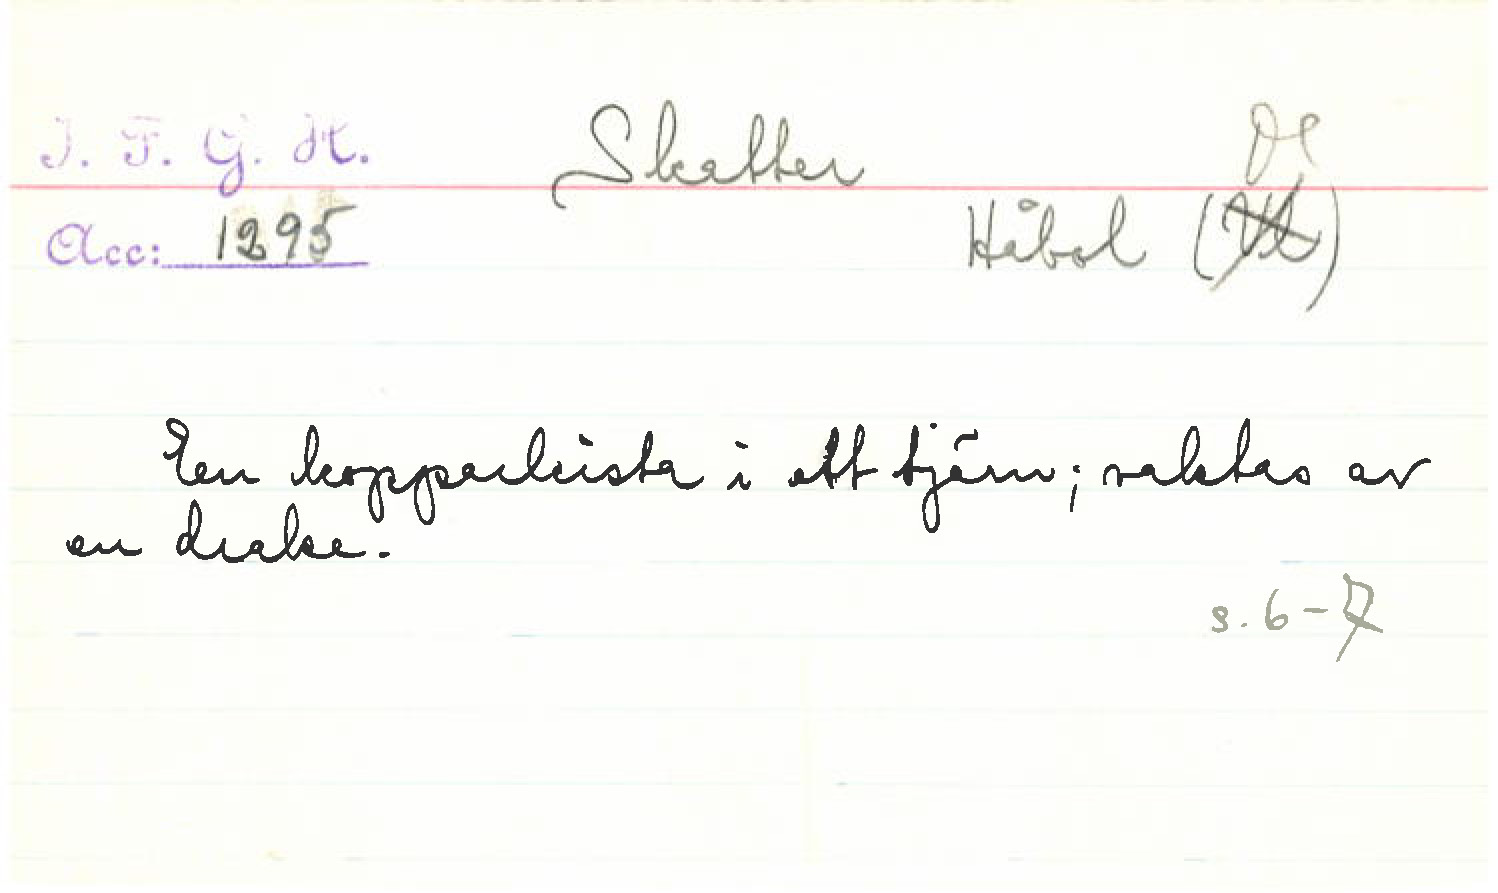 I. F. G. H.
Skatter
Dl
Acc: 1295
Håbol (Vl)
En kopparkista i ett tjärn; vaktas av
en drake.
s. 6-7